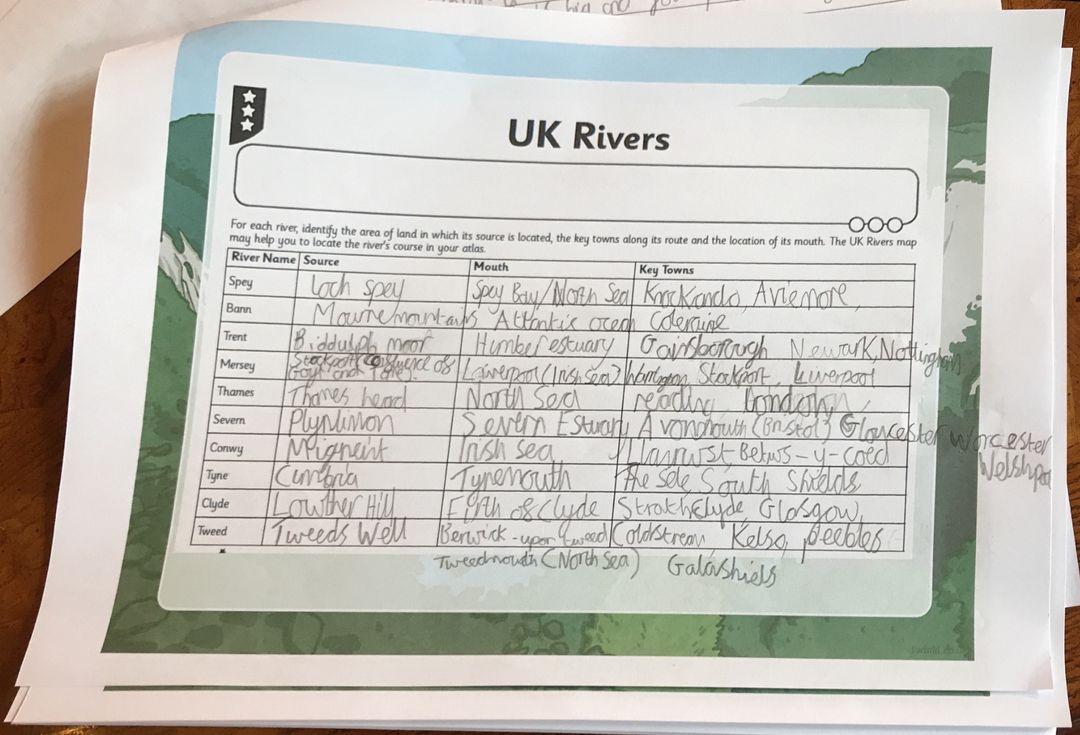 UK Rivers
For each river, identify the area of land in which its source is located, the key towns along its route and the location of its mouth. The UK Rivers map
may help you to locate the river's course in your atlas.
River Name Source Mouth Key Towns
Spey Loch spey Spey Bay/North Sea Knockando, Aviemore,
Bann Mourne mountains Atlantic ocean Coleraine
Trent Biddulph moor Humber estuary Gainsborough Newark, Nottingham
Mersey Stockport of Liverpool (Irish Sea) Stockport, Liverpool
Goyt and Tame).
Thames Thames head North Sea reading London,
Severn Plynlimon Severn Estuary Avonmouth (Bristol) Gloucester Worcester
Welshpool
Conwy Migneint Irish sea Llanrwst, Betws-y-coed
Tyne Cumbria Tynemouth The Sele, South Shields
Clyde Lowther Hill Firth of Clyde Strathclyde Glasgow,
Tweed Tweeds Well Berwick-upon tweed Coldstream Kelso, peebles
Tweedmouth (North Sea) Galashiels